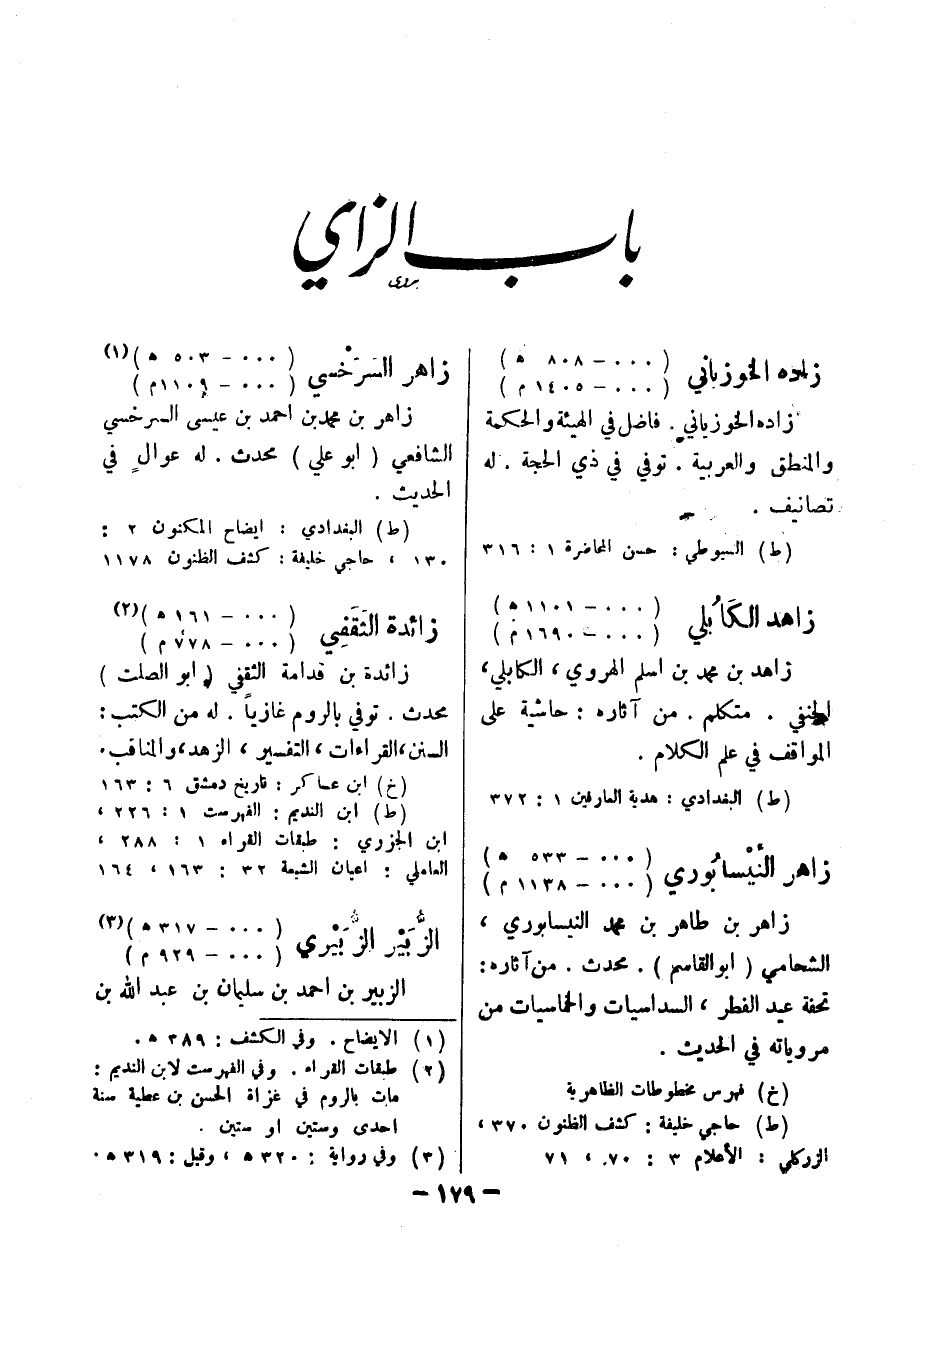 باب الزاي
زاده الخوزياني (٠٠٠ – ٨٠٨ ه)
(٠٠٠ – ١٤٠٥ م)
زاده الخوزياني . فاضل في الهيئة والحكمة
والمنطق والعربية . توفي في ذي الحجة . له
تصانيف .
(ط) السيوطي : حسن المحاضرة ١ : ٣١٦
زاهد الكَابُلي (٠٠٠ – ١١٠١ ه)
(٠٠٠ – ١٦٩٠ م)
زاهد بن محمد بن اسلم الهروي ، الكابلي،
الحنفي . متكلم . من آثاره : حاشية على
المواقف في علم الكلام .
(ط) البغدادي : هدية العارفين ١ : ٣٧٢
زاهر النَّيْسابُوري (٠٠٠ – ٥٣٣ ه)
(٠٠٠ – ١١٣٨ م)
زاهر بن طاهر بن محمد النيسابوري ،
الشحامي ( ابو القاسم ) . محدث . من آثاره :
تحفة عيد الفطر ، السداسيات والخماسيات من
مروياته في الحديث .
(خ) فهرس مخطوطات الظاهرية
(ط) حاجي خليفة : كشف الظنون ٣٧٠ ،
الزركلي : الأعلام ٣ : ٧٠، ٧١
زاهر السَرَخْسي (٠٠٠ – ٥٠٣ ه)(١)
(٠٠٠ – ١١٠٩ م)
زاهر بن محمد بن احمد بن عيسى السرخسي
الشافعي ( ابو علي ) محدث . له عوالٍ في
الحديث .
(ط) البغدادي : ايضاح المكنون ٢ :
١٣٠ ، حاجي خليفة : كشف الظنون ١١٧٨
زائدة الثَقَفِي (٠٠٠ – ١٦١ ه)(٢)
(٠٠٠ – ٧٧٨ م)
زائدة بن قدامة الثقفي ( ابو الصلت )
محدث . توفي بالروم غازياً . له من الكتب :
السنن، القراءات ، التفسير ، الزهد، والمناقب .
(خ) ابن عساكر : تاريخ دمشق ٦ : ١٦٣
(ط) ابن النديم : الفهرست ١ : ٢٢٦ ،
ابن الجزري : طبقات القراء ١ : ٢٨٨ ،
العاملي : اعيان الشيعة ٣٢ : ١٦٣ ، ١٦٤
الزُّبَيْر الزُّبَيْري (٠٠٠ – ٣١٧ ه)(٣)
(٠٠٠ – ٩٢٩ م)
الزبير بن احمد بن سليمان بن عبد الله بن
(١) الايضاح . وفي الكشف : ٣٨٩ ه .
(٢) طبقات القراء . وفي الفهرست لابن النديم :
مات بالروم في غزاة الحسن بن عطية سنة
احدى وستين او ستين .
(٣) وفي رواية : ٣٢٠ ه ، وقيل : ٣١٩ ه .
– ١٧٩ –